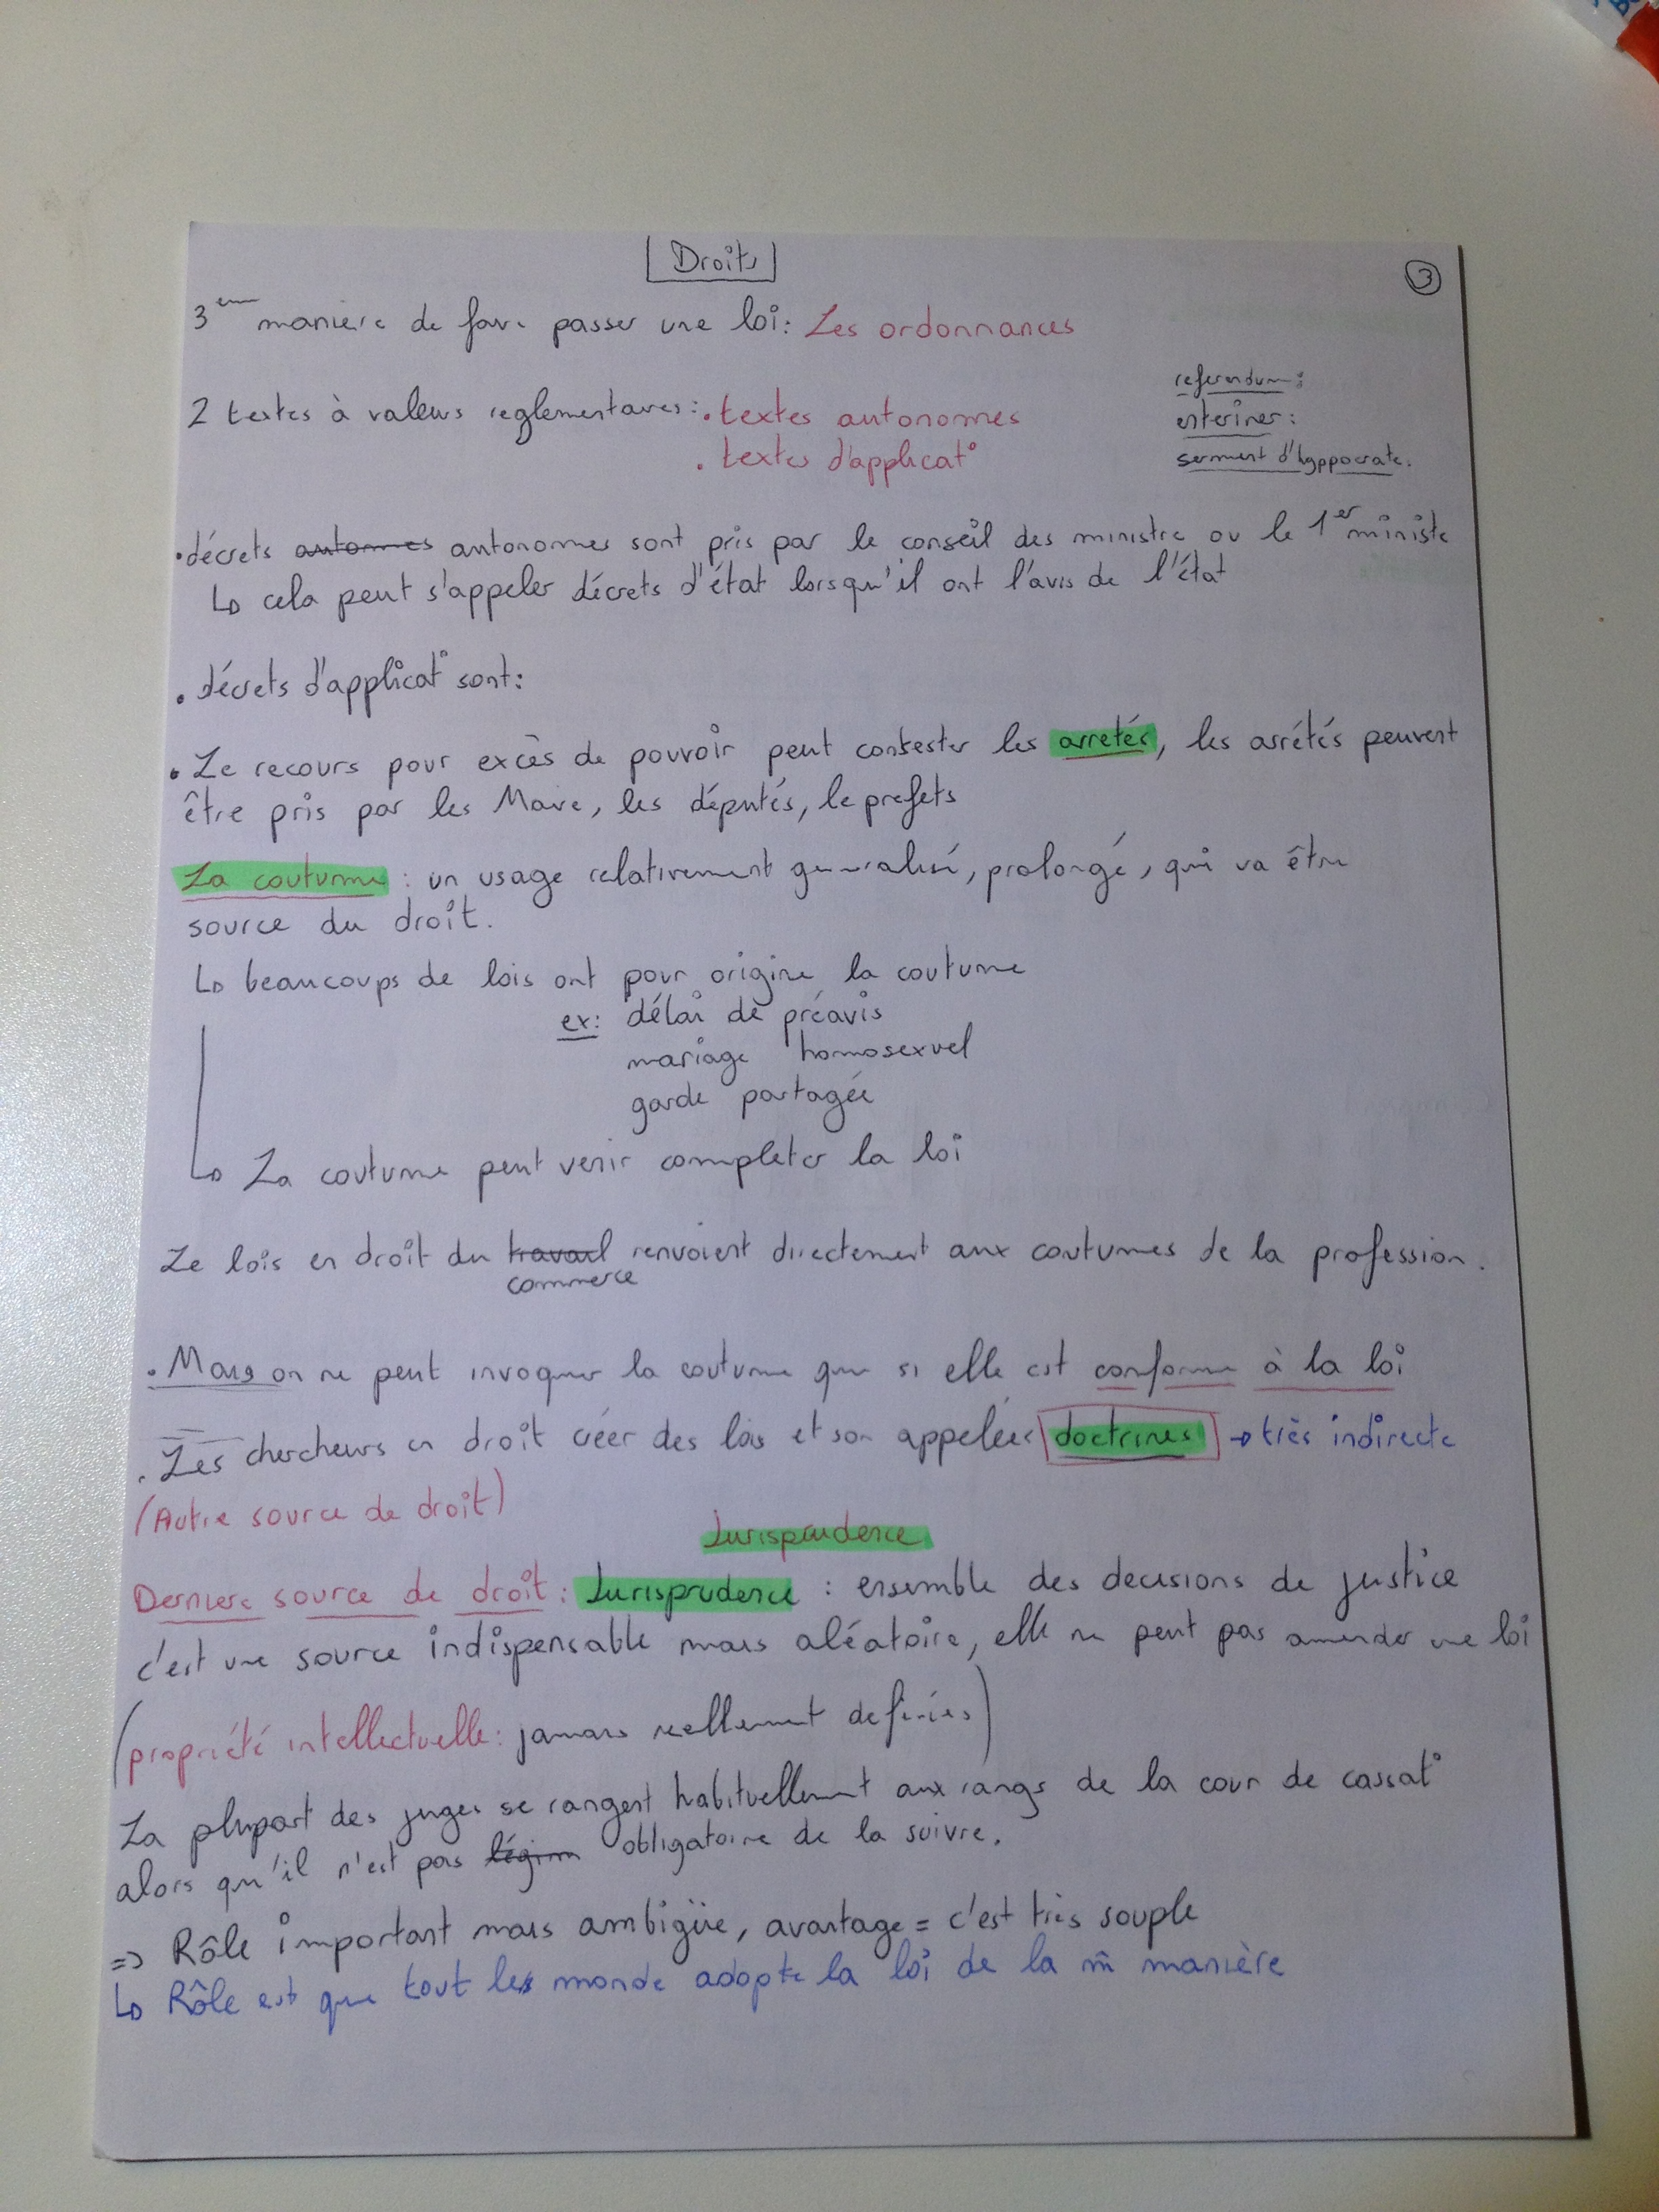 Droits
3
3ème manière de faire passer une loi: Les ordonnances
referendum:
2 textes à valeurs reglementaires: . textes autonomes
enteriner:
. textes d'applicat°
serment d'hyppocrate:
. décrets autonmes autonomes sont pris par le conseil des ministre ou le 1er ministe
↳ cela peut s'appeler décrets d'état lorsqu'il ont l'avis de l'état
. décrets d'applicat° sont:
. Le recours pour excès de pouvoir peut contester les arretés, les arrétés peuvent
être pris par les Maire, les députés, le prefets
La coutume : un usage relativement generalisé, prolongé, qui va être
source du droit.
↳ beaucoups de lois ont pour origine la coutume
ex: délai de préavis
mariage homosexuel
garde partagée
↳ La coutume peut venir completer la loi
Le lois en droit du travail renvoient directement aux coutumes de la profession.
commerce
. Mais on ne peut invoquer la coutume que si elle est conforme à la loi
. Les chercheurs en droit créer des lois et son appelées doctrines → très indirecte
(Autre source de droit)
Jurisprudence
Derniere source de droit : Jurisprudence : ensemble des decisions de justice
c'est une source indispensable mais aléatoire, elle ne peut pas amender une loi
(propriété intellectuelle : jamais reellement definies)
La plupart des juges se rangent habituellement aux rangs de la cour de cassat°
alors qu'il n'est pas légim obligatoire de la suivre.
=> Rôle important mais ambigüe, avantage = c'est très souple
↳ Rôle est que tout les monde adopte la loi de la m̂ manière